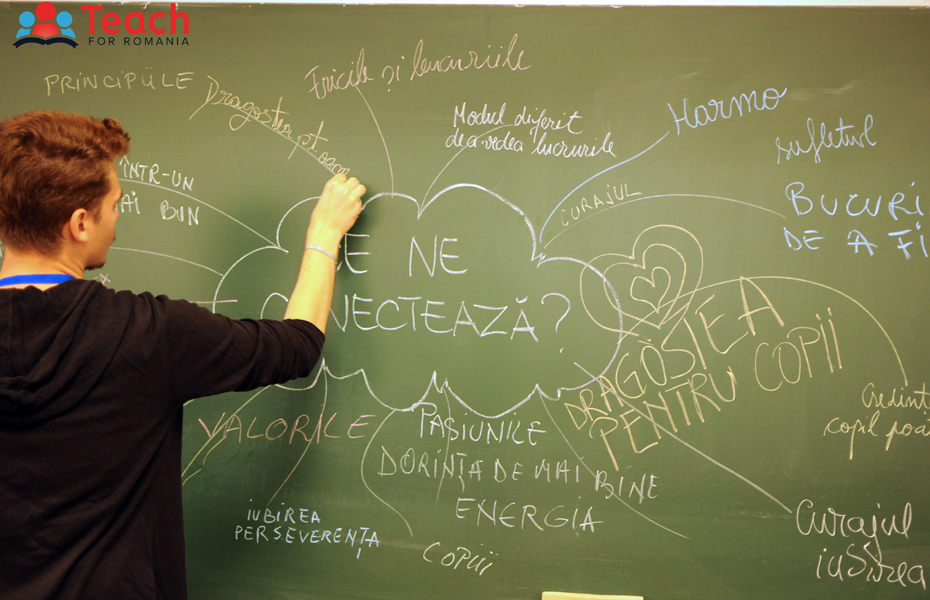 Teach
FOR ROMANIA
PRINCIPIILE
Dragostea pt. oam
Fricile și bucuriile
Modul diferit
de a vedea lucrurile
Harmo
sufletul
CURAJUL
BUCURI
DE A FI
ÎNTR-UN
AI BUN
CE NE
NECTEAZĂ?
DRAGOSTEA
PENTRU COPII
Credint
copil poa
VALORILE
PASIUNILE
DORINȚA DE MAI BINE
ENERGIA
IUBIREA
PERSEVERENȚA
COPIII
Curajul
iubirea